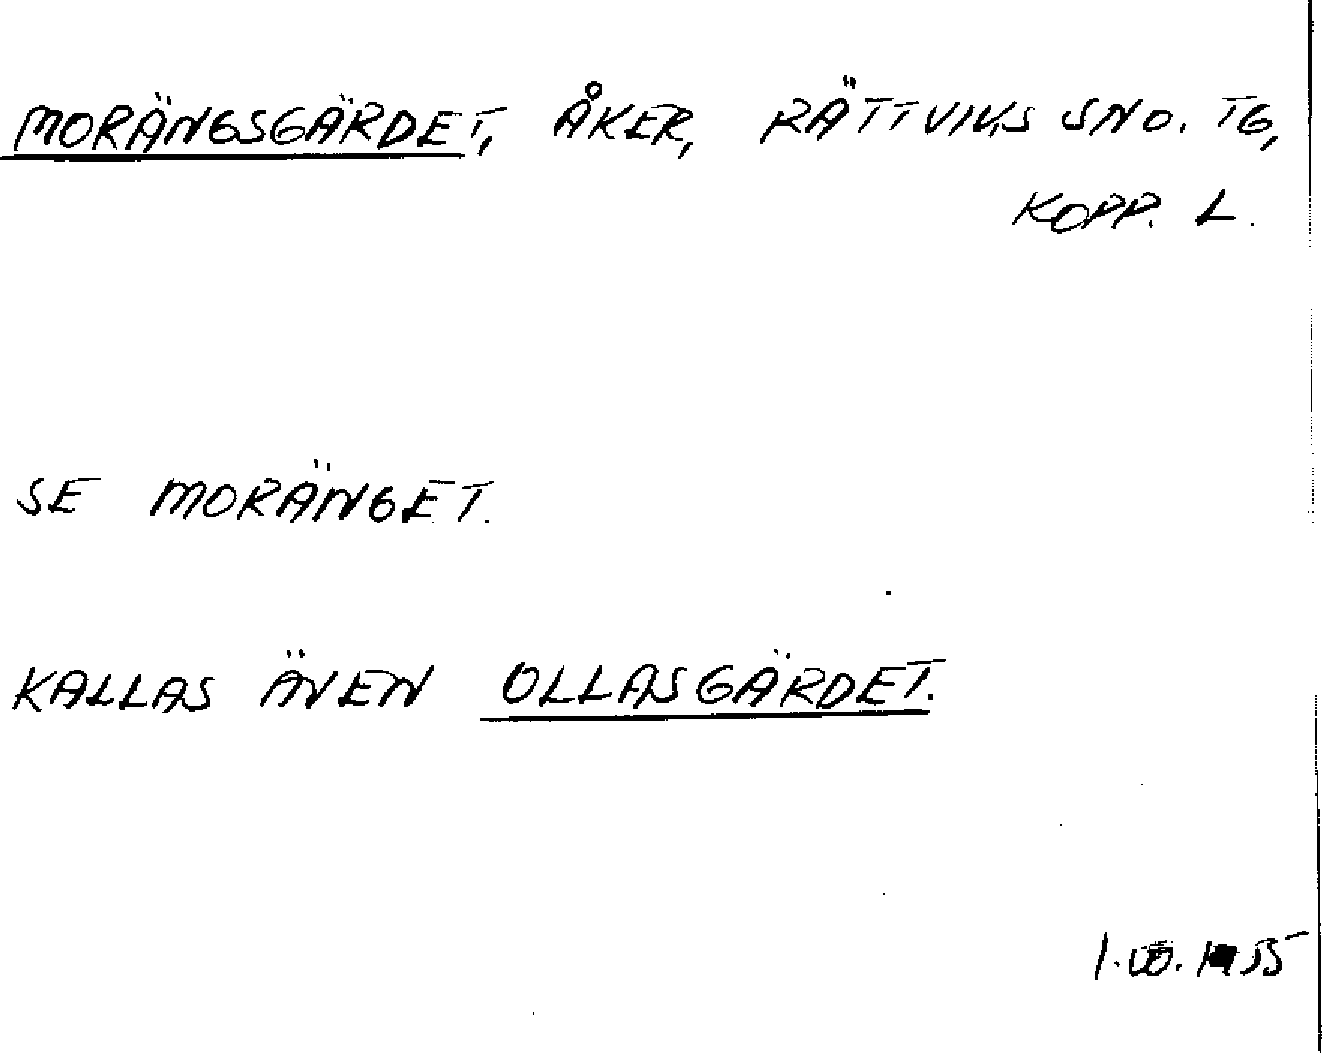 MORÄNGSGÄRDET, ÅKER, RÄTTVIKS SND. TG,
KOPP. L.
SE MORÄNGET.
KALLAS ÄVEN OLLASGÄRDET.